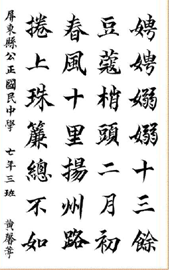 娉娉嫋嫋十三餘
豆蔻梢頭二月初
春風十里揚州路
捲上珠簾總不如
屏東縣公正國民中學 七年三班 黃馨